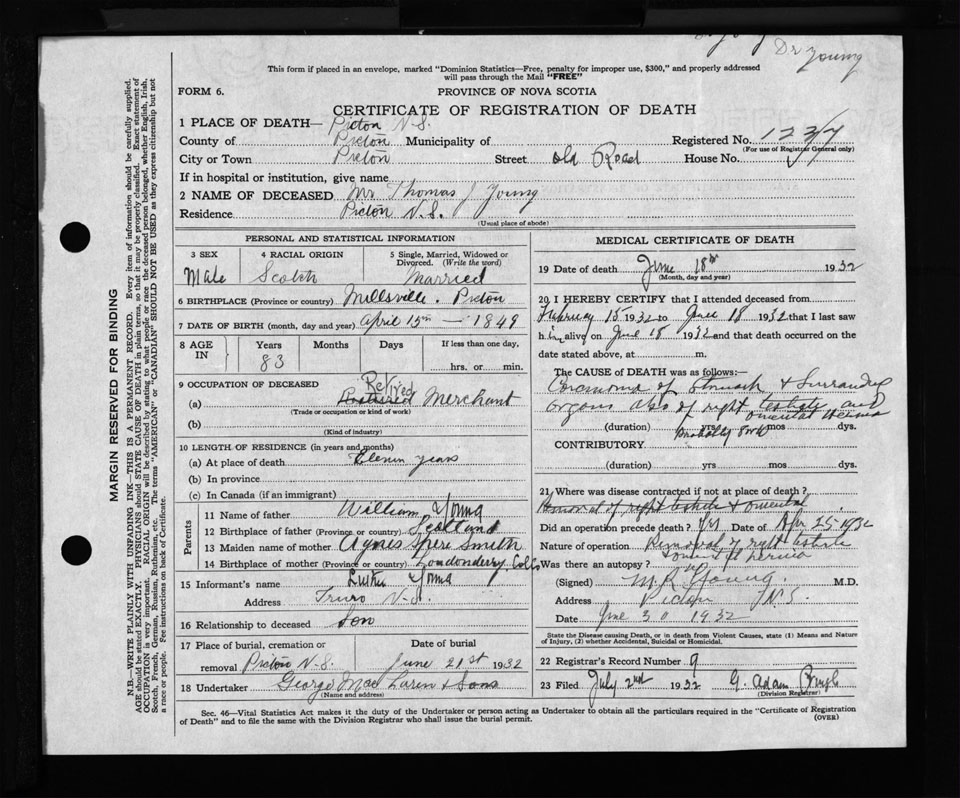 Dr Young
This form if placed in an envelope, marked "Dominion Statistics—Free, penalty for improper use, $300," and properly addressed
will pass through the Mail "FREE"
FORM 6.
PROVINCE OF NOVA SCOTIA
CERTIFICATE OF REGISTRATION OF DEATH
1 PLACE OF DEATH— Picton N.S.
County of Picton Municipality of Registered No. 1237
(For use of Registrar General only)
City or Town Picton Street Old Road House No.
If in hospital or institution, give name
2 NAME OF DECEASED Mr Thomas J Young
Residence Picton N.S.
(Usual place of abode)
PERSONAL AND STATISTICAL INFORMATION
3 SEX 4 RACIAL ORIGIN 5 Single, Married, Widowed or Divorced. (Write the word)
Male Scotch Married
6 BIRTHPLACE (Province or country) Millsville. Picton
7 DATE OF BIRTH (month, day and year) April 15th — 1849
8 AGE IN Years Months Days If less than one day,
83 hrs. or min.
9 OCCUPATION OF DECEASED Retired
(a) Merchant
(Trade or occupation or kind of work)
(b)
(Kind of industry)
10 LENGTH OF RESIDENCE (in years and months)
(a) At place of death Eleven years
(b) In province
(c) In Canada (if an immigrant)
Parents
11 Name of father William Young
12 Birthplace of father (Province or country) Scotland
13 Maiden name of mother Agnes Smith
14 Birthplace of mother (Province or country) Londonderry Col Co
15 Informant's name Luther Young
Address Truro N.S.
16 Relationship to deceased Son
17 Place of burial, cremation or removal Date of burial
Picton N.S. June 21st 1932
18 Undertaker George MacLaren & Sons
(Name and address)
MEDICAL CERTIFICATE OF DEATH
19 Date of death June 18th 1932
(Month, day and year)
20 I HEREBY CERTIFY that I attended deceased from
February 15 1932 to June 18 1932 that I last saw
him alive on June 18 1932 and that death occurred on the
date stated above, at m.
The CAUSE OF DEATH was as follows:—
Carcinoma of Stomach & Surrounding
organs also of right testicle and
omental hernia
(duration) yrs mos dys.
Probably
CONTRIBUTORY
(duration) yrs mos dys.
21 Where was disease contracted if not at place of death?
Removal of right testicle & omental
Did an operation precede death? Yes Date of Apr 25-1932
Nature of operation Removal of right testicle
omental hernia
Was there an autopsy? no
(Signed) M.R. Young. M.D.
Address Picton N.S.
Date June 30 1932
State the Disease causing Death, or in death from Violent Causes, state (1) Means and Nature
of Injury, (2) whether Accidental, Suicidal or Homicidal.
22 Registrar's Record Number 9
23 Filed July 2nd 1932 G. Adam
(Division Registrar)
Sec. 46—Vital Statistics Act makes it the duty of the Undertaker or person acting as Undertaker to obtain all the particulars required in the "Certificate of Registration
of Death" and to file the same with the Division Registrar who shall issue the burial permit. (OVER)
MARGIN RESERVED FOR BINDING
N.B.—WRITE PLAINLY WITH UNFADING INK—THIS IS A PERMANENT RECORD. Every item of information should be carefully supplied.
AGE should be stated EXACTLY. PHYSICIANS should STATE CAUSE OF DEATH in plain terms, so that it may be properly classified. Exact statement of
OCCUPATION is very important. RACIAL ORIGIN will be described by stating to what people or race the deceased person belonged, whether English, Irish,
Scotch, French, German, Russian, Ruthenian, etc. The terms "AMERICAN" or "CANADIAN" SHOULD NOT BE USED as they express citizenship but not
a race or people. See instructions on back of Certificate.